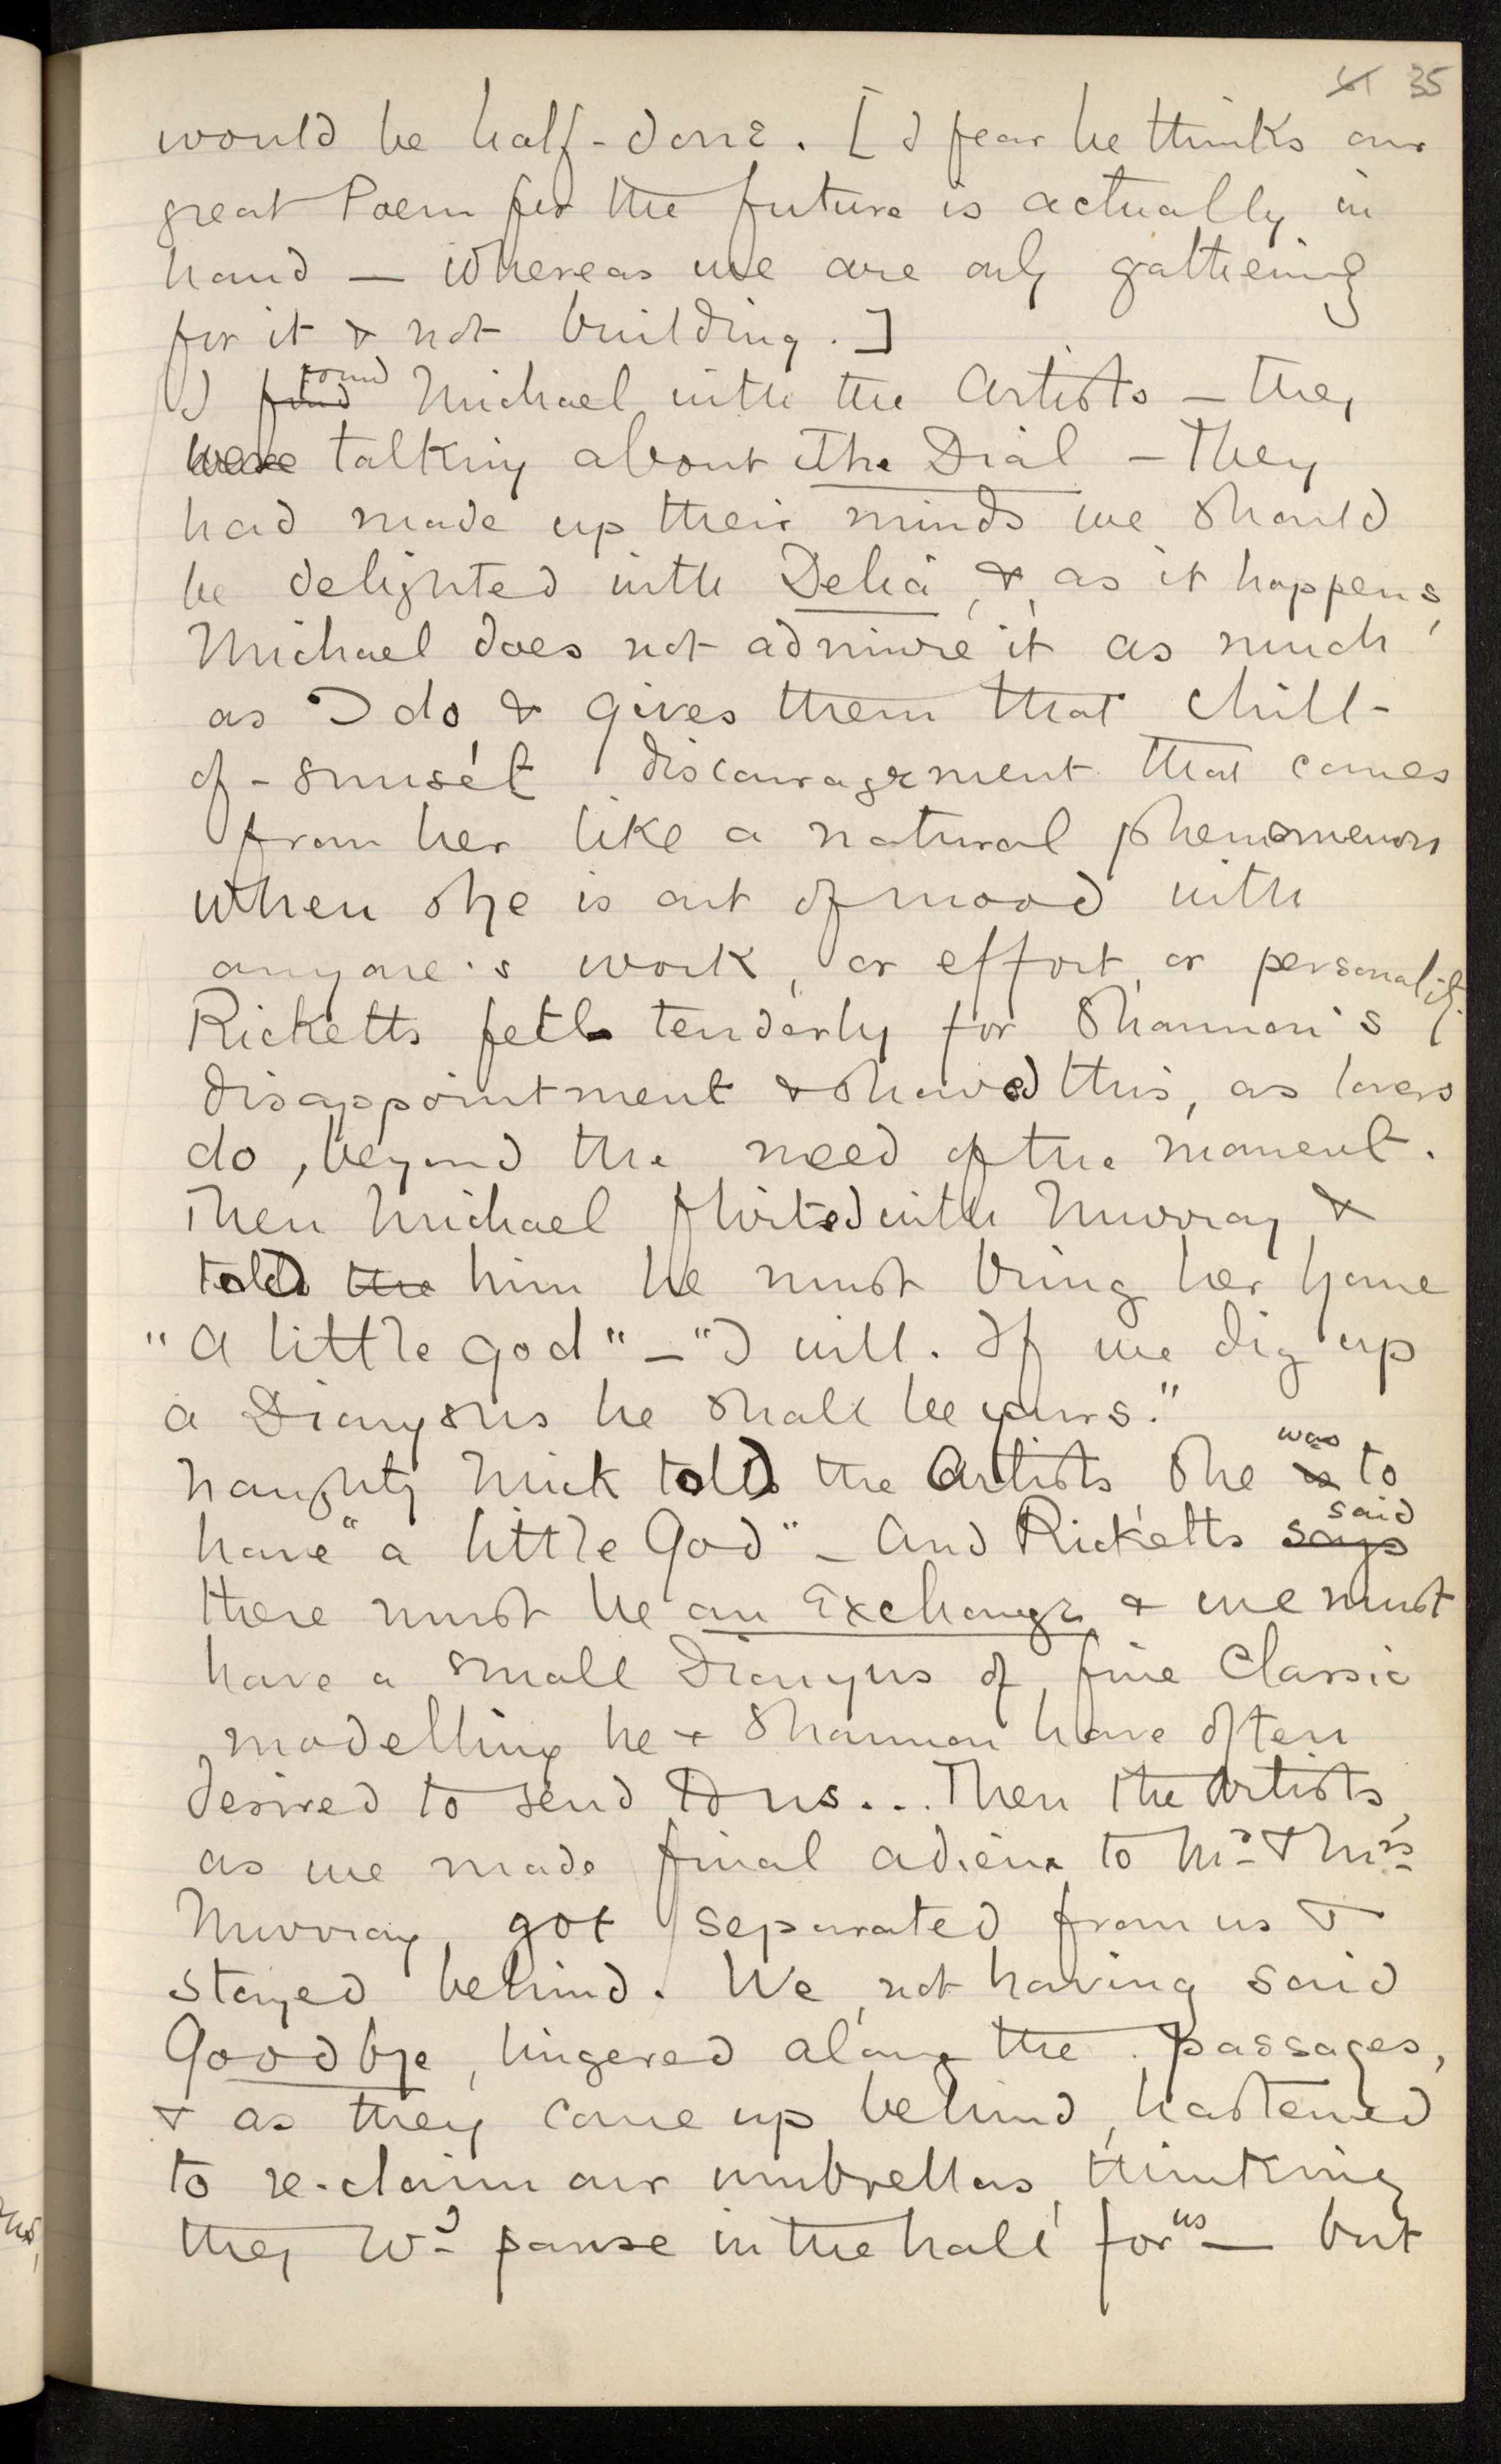 51 35
would be half-done. [I fear he thinks our
great Poem for the future is actually in
hand — whereas we are only gathering
for it & not building.]
I find found Michael with the Artists — they
were talking about The Dial — They
had made up their minds we should
be delighted with Delia, &, as it happens,
Michael does not admire it as much
as I do, & gives them that chill-
of-sunset discouragement that comes
from her like a natural phenomenon
when she is out of mood with
anyone's work, or effort, or personality.
Ricketts felt tenderly for Shannon's
disappointment & showed this, as lovers
do, beyond the need of the moment.
Then Michael flirted with Murray, &
told the him he must bring her home
"a little god" — "I will. If we dig up
a Dionysus he shall be yours."
Naughty Mick told the Artists she is was to
have "a little God" — And Ricketts says said
there must be an Exchange & we must
have a small Dionyus of fine Classic
modelling he & Shannon have often
desired to send to us... Then the Artists,
as we made final adieux to Mr & Mrs
Murray, got separated from us &
stayed behind. We, not having said
Goodbye, lingered along the passages,
& as they came up behind, hastened
to re-claim our umbrellas, thinking
they wd pause in the hall for us — but